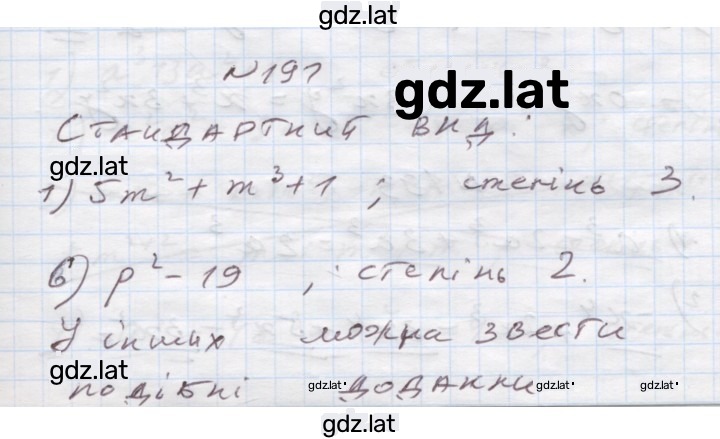 gdz.lat
№191
gdz.lat
Стандартний вид:
gdz.lat
1) 5m² + m³ + 1 ; степінь 3.
6) p² - 19 , степінь 2.
У інших можна звести
gdz.lat
подібні доданки
gdz.lat gdz.lat gdz.lat
gdz.lat